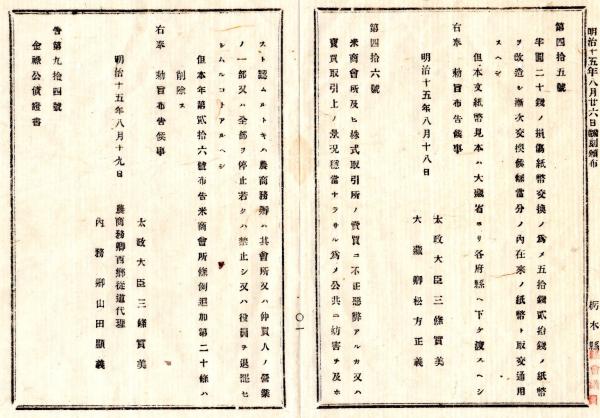 明治十五年八月廿六日飜刻頒布
栃木縣
第四拾五號
半圓二十錢ノ損傷紙幣交換ノ爲メ五拾錢貳拾錢ノ紙幣
ヲ改造シ漸次交換候條當分ノ內在來ノ紙幣ト取交通用
スヘシ
但本文紙幣見本ハ大藏省ヨリ各府縣ヘ下タ渡スヘシ
右奉 勅旨布告候事
明治十五年八月十八日
太政大臣三條實美
大藏卿松方正義
第四拾六號
米商會所及ヒ株式取引所ノ賣買ニ不正惡弊アルカ又ハ
賣買取引上ノ景況穩當ナラサル爲メ公共ニ妨害ヲ及ホ
スト認ムルトキハ農商務卿ハ其會所又ハ仲買人ノ營業
ノ一部又ハ全部ヲ停止若クハ禁止シ又ハ役員ヲ退罷セ
シムルコトアルヘシ
但本年第貳拾六號布告米商會所條例追加第二十條ハ
削除ス
右奉 勅旨布告候事
明治十五年八月十九日
太政大臣三條實美
農商務卿西鄉從道代理
內務卿山田顯義
告第九拾四號
金祿公債證書